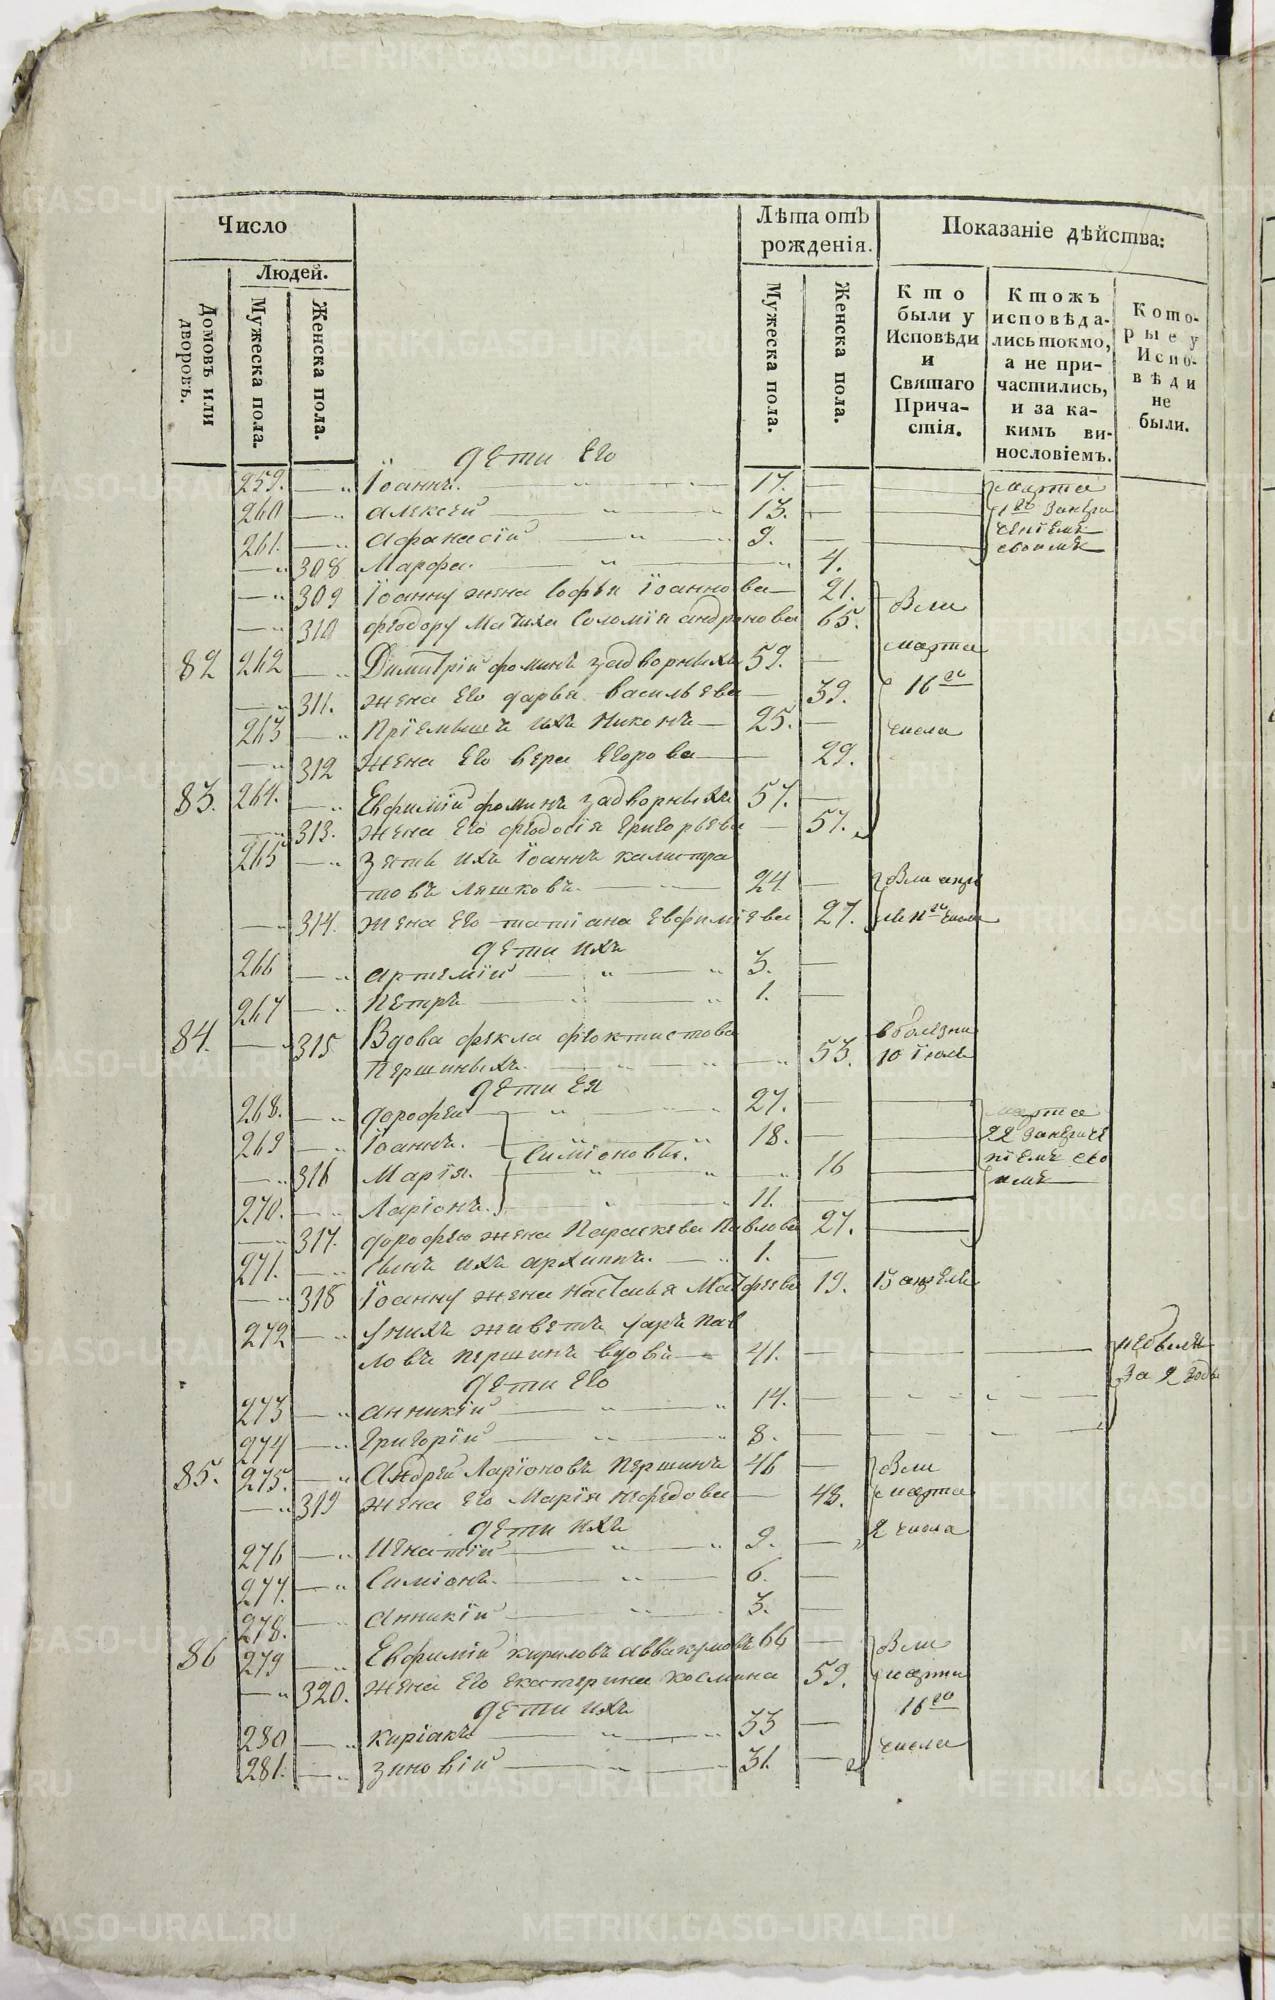 Число
Людей.
Домовъ или дворовъ.
Мужеска пола.
Женска пола.
Лѣта отъ рожденія.
Мужеска пола.
Женска пола.
Показаніе дѣйства:
Кто были у Исповѣди и Святаго Причастія.
Ктожъ исповѣдались токмо, а не причастились, и за какимъ винословіемъ.
Которые у Исповѣди не были.
дети его
259. Іоаннъ. 17. марта
260 алексей 13. 1го
261. Афанасій 9. своимъ
308 Марфа. 4.
309 Іоанну жена Софья Іоаннова 21. Были
310 Феодору Матиха Соломія андронова 65. марта
82 262 Димитрій фоминъ задворныхъ 59.
311. жена его дарья васильева 39. 16го
263 Пріемышъ ихъ Никонъ 25. числа
312 жена его вера Егорова 29.
83. 264. Евфимій фоминъ задворныхъ 57.
313. жена его феодосія григорьева 57.
265 зять ихъ Іоаннъ калистра
товъ Ляшковъ. 24 Были апре
314. жена его татіана Евфиміева 27. ля 11го числа
дети ихъ
266 артемій 3.
267 Петръ 1.
84. 315 Вдова фекла феоктистова в болезни
Першиныхъ. 53. 10 Іюля
дети ея
268. дорофеи 27. марта
269 Іоаннъ. 18. 22
Симіоновы.
316 Марія. 16
270. Ларіонъ. 11.
317. дорофею жена Параскева Павлова 27.
271. сынъ ихъ архиппъ. 1.
318 Іоанну жена настасья Матфеева 19. 15 апреля
272 У нихъ живетъ Пав
ловъ першинъ вдовъ 41. небыли
дети его за 2 года
273 анникій 14.
274 григорій 8.
85. 275. Андрей Ларіоновъ Першинъ 46 Были
319 жена его Марія нефедова 48. марта
дети ихъ 2 числа
276 Игнатій 9.
277. Симіонъ. 6.
278. анникій 3.
86 279 Евфимій кириловъ аввакумовъ 66 Были
320. жена его екатерина косьмина 59. марта
дети ихъ 16го
280 киріакъ 33 числа
281. зиновій 31.
METRIKI.GASO-URAL.RU